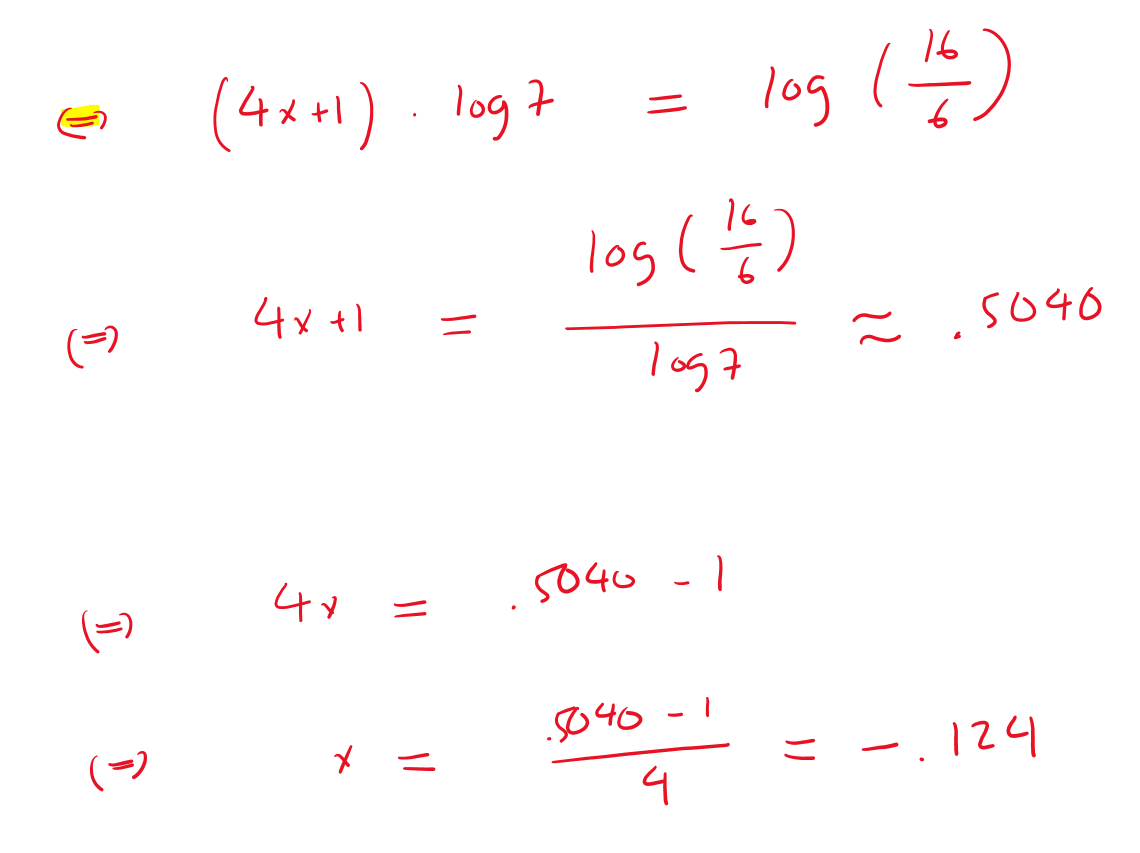 ⇔ (4x+1) · log 7 = log (16/6)
⇔ 4x+1 = log (16/6) / log 7 ≈ .5040
⇔ 4x = .5040 - 1
⇔ x = .5040 - 1 / 4 = - .124